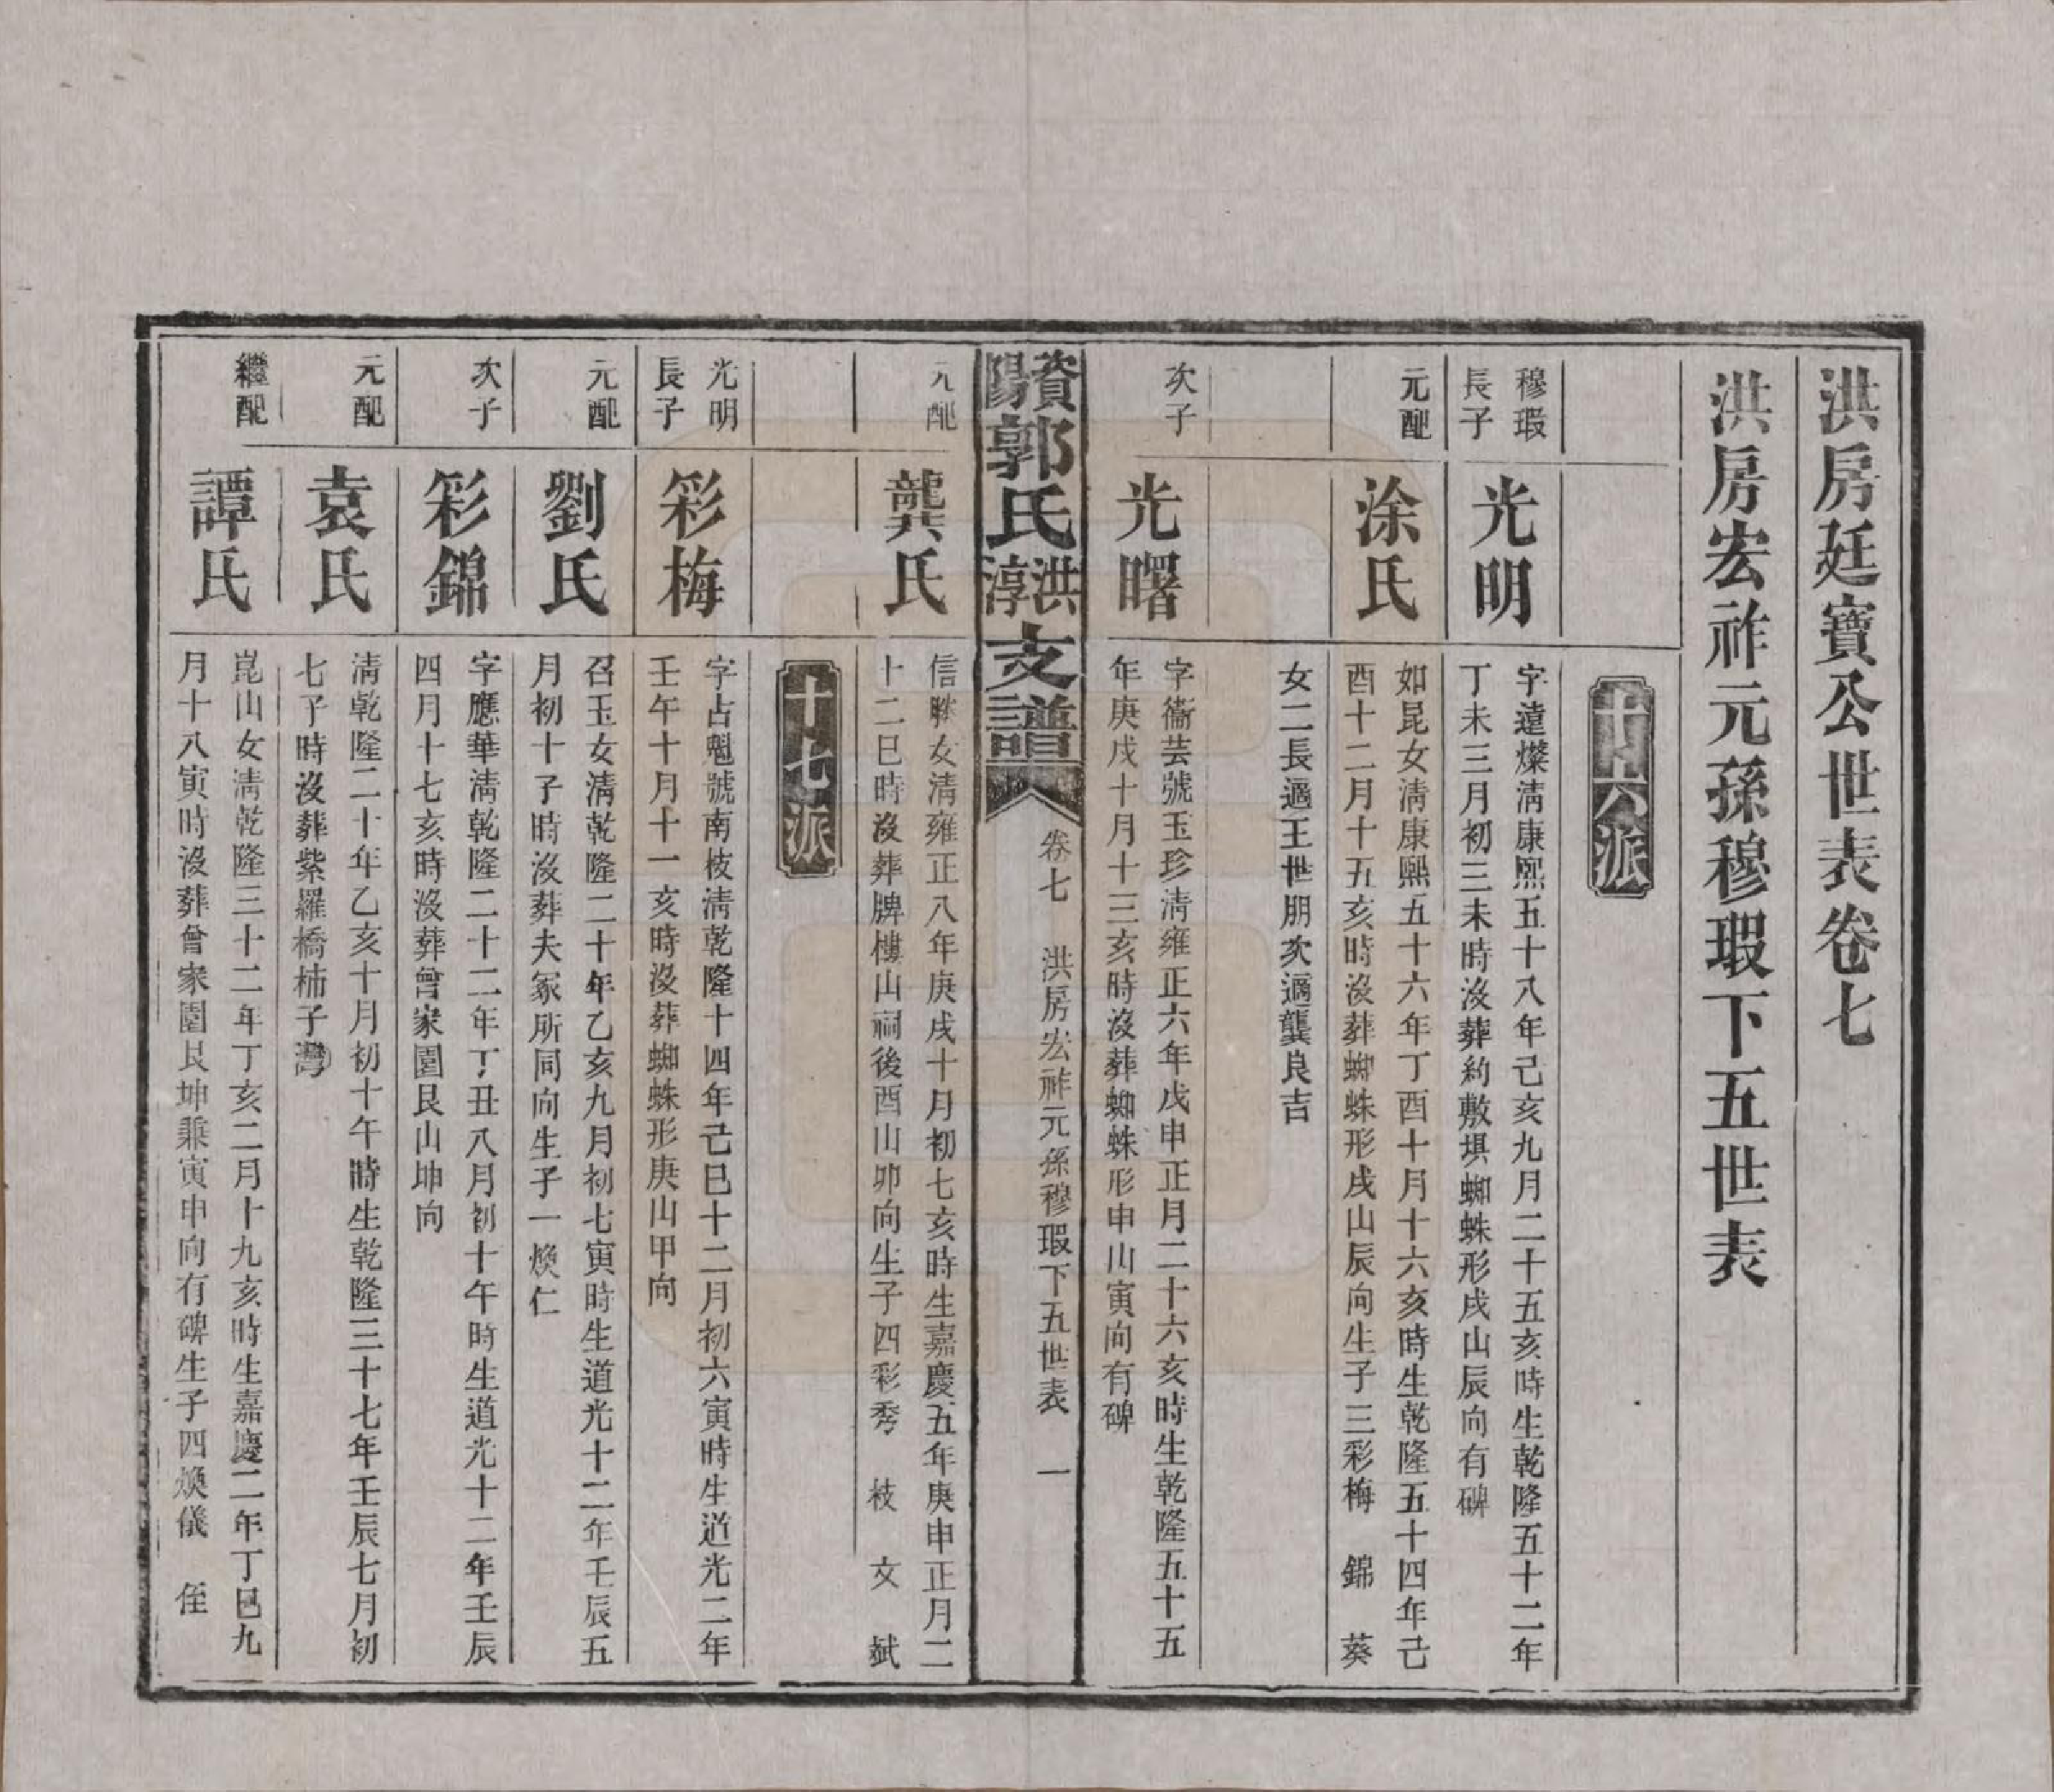 洪房廷寶公世表卷七
洪房宏祚元孫穆瑕下五世表
十六派
穆瑕
長子
光明
字遠燦淸康熙五十八年己亥九月二十五亥時生乾隆五十二年
丁未三月初三未時沒葬約敷垻蜘蛛形戌山辰向有碑
元配
涂氏
如昆女淸康熙五十六年丁酉十月十六亥時生乾隆五十四年己
酉十二月十五亥時沒葬蜘蛛形戌山辰向生子三彩梅 錦 葵
女二長適王世朋次適龔良吉
次子
光曙
字衞芸號玉珍淸雍正六年戊申正月二十六亥時生乾隆五十五
年庚戌十月十三亥時沒葬蜘蛛形申山寅向有碑
資陽郭氏洪淳支譜
卷七 洪房宏祚元孫穆瑕下五世表 一
元配
龔氏
信勝女淸雍正八年庚戌十月初七亥時生嘉慶五年庚申正月二
十二巳時沒葬牌樓山祠後酉山卯向生子四彩秀 枝 文 斌
十七派
光明
長子
彩梅
字占魁號南枝淸乾隆十四年己巳十二月初六寅時生道光二年
壬午十月十一亥時沒葬蜘蛛形庚山甲向
元配
劉氏
召玉女淸乾隆二十年乙亥九月初七寅時生道光十二年壬辰五
月初十子時沒葬夫冢所同向生子一煥仁
次子
彩錦
字應華淸乾隆二十二年丁丑八月初十午時生道光十二年壬辰
四月十七亥時沒葬曾家園艮山坤向
元配
袁氏
淸乾隆二十年乙亥十月初十午時生乾隆三十七年壬辰七月初
七子時沒葬紫羅橋柿子灣
繼配
譚氏
崑山女淸乾隆三十二年丁亥二月十九亥時生嘉慶二年丁巳九
月十八寅時沒葬曾家園艮坤乘寅申向有碑生子四煥儀 侄